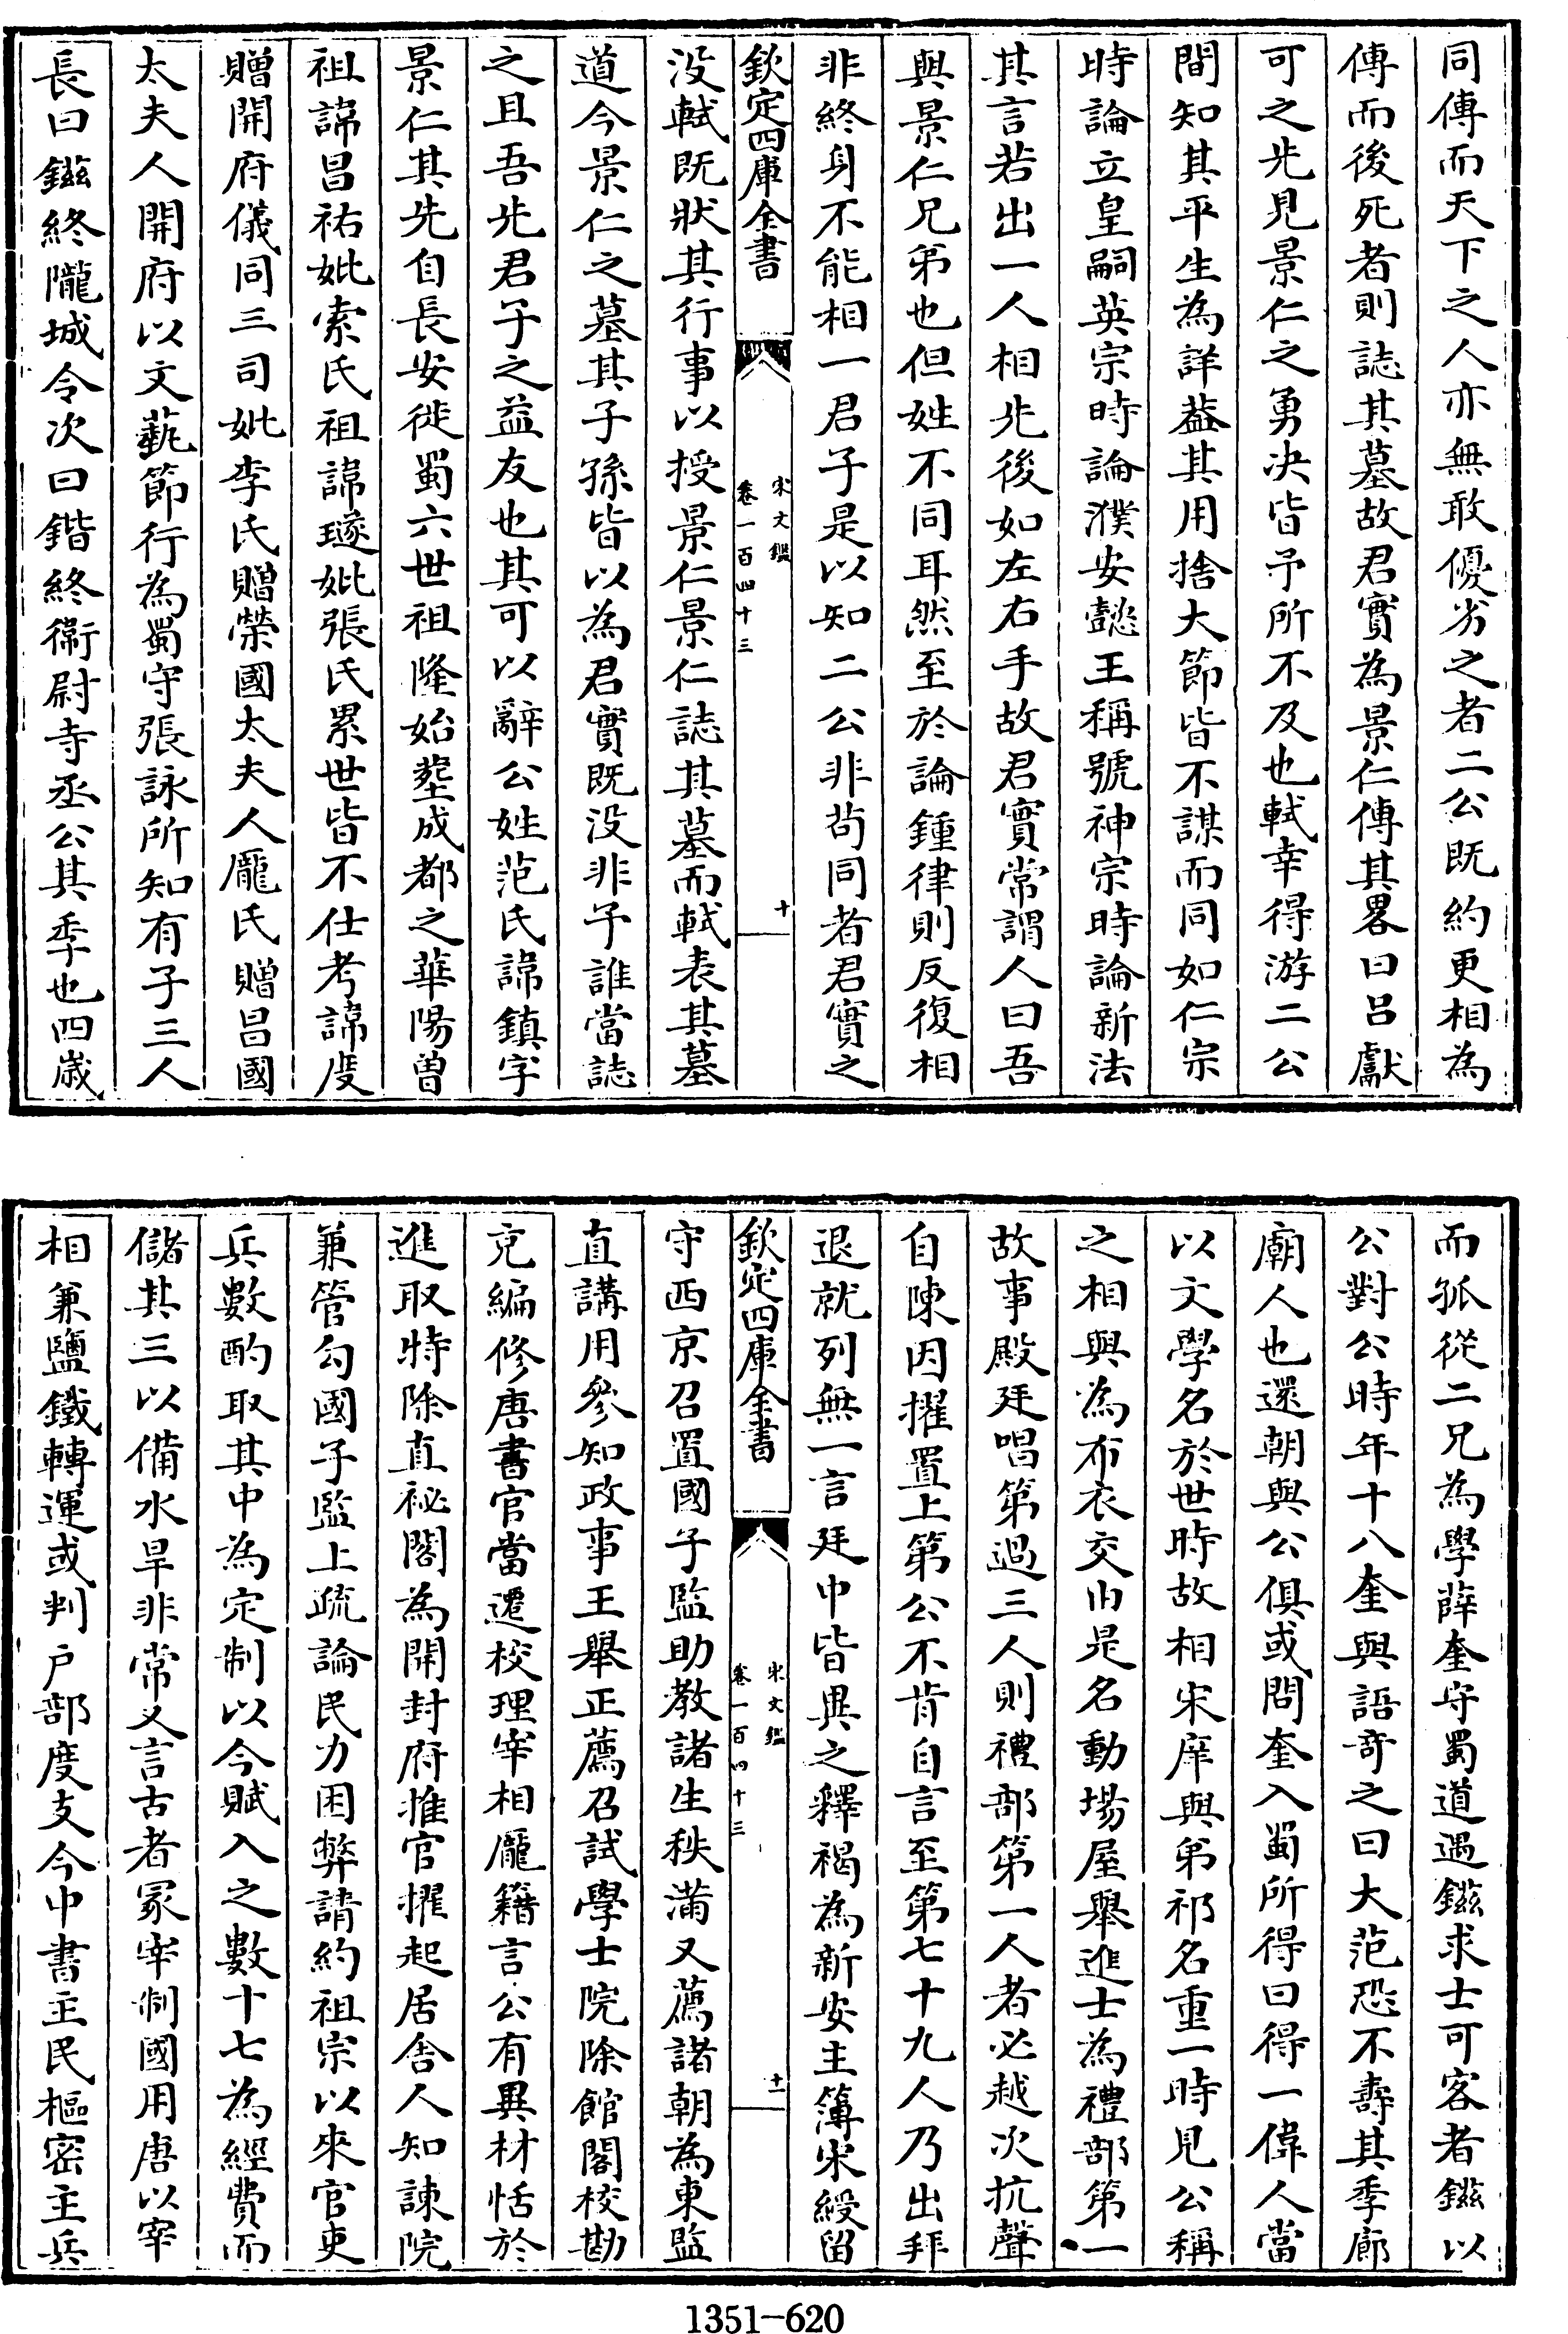 同傳而天下之人亦無敢優劣之者二公既約更相為
傳而後死者則誌其墓故君實為景仁傳其畧曰吕獻
可之先見景仁之勇決皆予所不及也軾幸得游二公
間知其平生為詳葢其用捨大節皆不謀而同如仁宗
時論立皇嗣英宗時論濮安懿王稱號神宗時論新法
其言若出一人相先後如左右手故君實常謂人曰吾
與景仁兄弟也但姓不同耳然至於論鍾律則反復相
非終身不能相一君子是以知二公非苟同者君實之
欽定四庫全書
宋文鑑
卷一百四十三
十
没軾既狀其行事以授景仁景仁誌其墓而軾表其墓
道今景仁之墓其子孫皆以為君實既没非子誰當誌
之且吾先君子之益友也其可以辭公姓范氏諱鎮字
景仁其先自長安徙蜀六世祖隆始塟成都之華陽曽
祖諱昌祐妣索氏祖諱璲妣張氏累世皆不仕考諱度
贈開府儀同三司妣李氏贈榮國太夫人龐氏贈昌國
太夫人開府以文藝節行為蜀守張詠所知有子三人
長曰鎡終隴城令次曰鍇終衞尉寺丞公其季也四歲
而孤從二兄為學薛奎守蜀道遇鎡求士可客者鎡以
公對公時年十八奎與語奇之曰大范恐不壽其季廊
廟人也還朝與公俱或問奎入蜀所得曰得一偉人當
以文學名於世時故相宋庠與弟祁名重一時見公稱
之相與為布衣交由是名動場屋舉進士為禮部第一
故事殿廷唱第過三人則禮部第一人者必越次抗聲
自陳因擢置上第公不肯自言至第七十九人乃出拜
退就列無一言廷中皆異之釋褐為新安主簿宋綬留
欽定四庫全書
宋文鑑
卷一百四十三
十一
守西京召置國子監助教諸生秩滿又薦諸朝為東監
直講用參知政事王舉正薦召試學士院除館閣校勘
充編修唐書官當遷校理宰相龐籍言公有異材恬於
進取特除直祕閣為開封府推官擢起居舍人知諫院
兼管勾國子監上疏論民力困弊請約祖宗以來官吏
兵數酌取其中為定制以今賦入之數十七為經費而
儲其三以備水旱非常又言古者冢宰制國用唐以宰
相兼鹽鐵轉運或判戸部度支今中書主民樞密主兵
1351-620